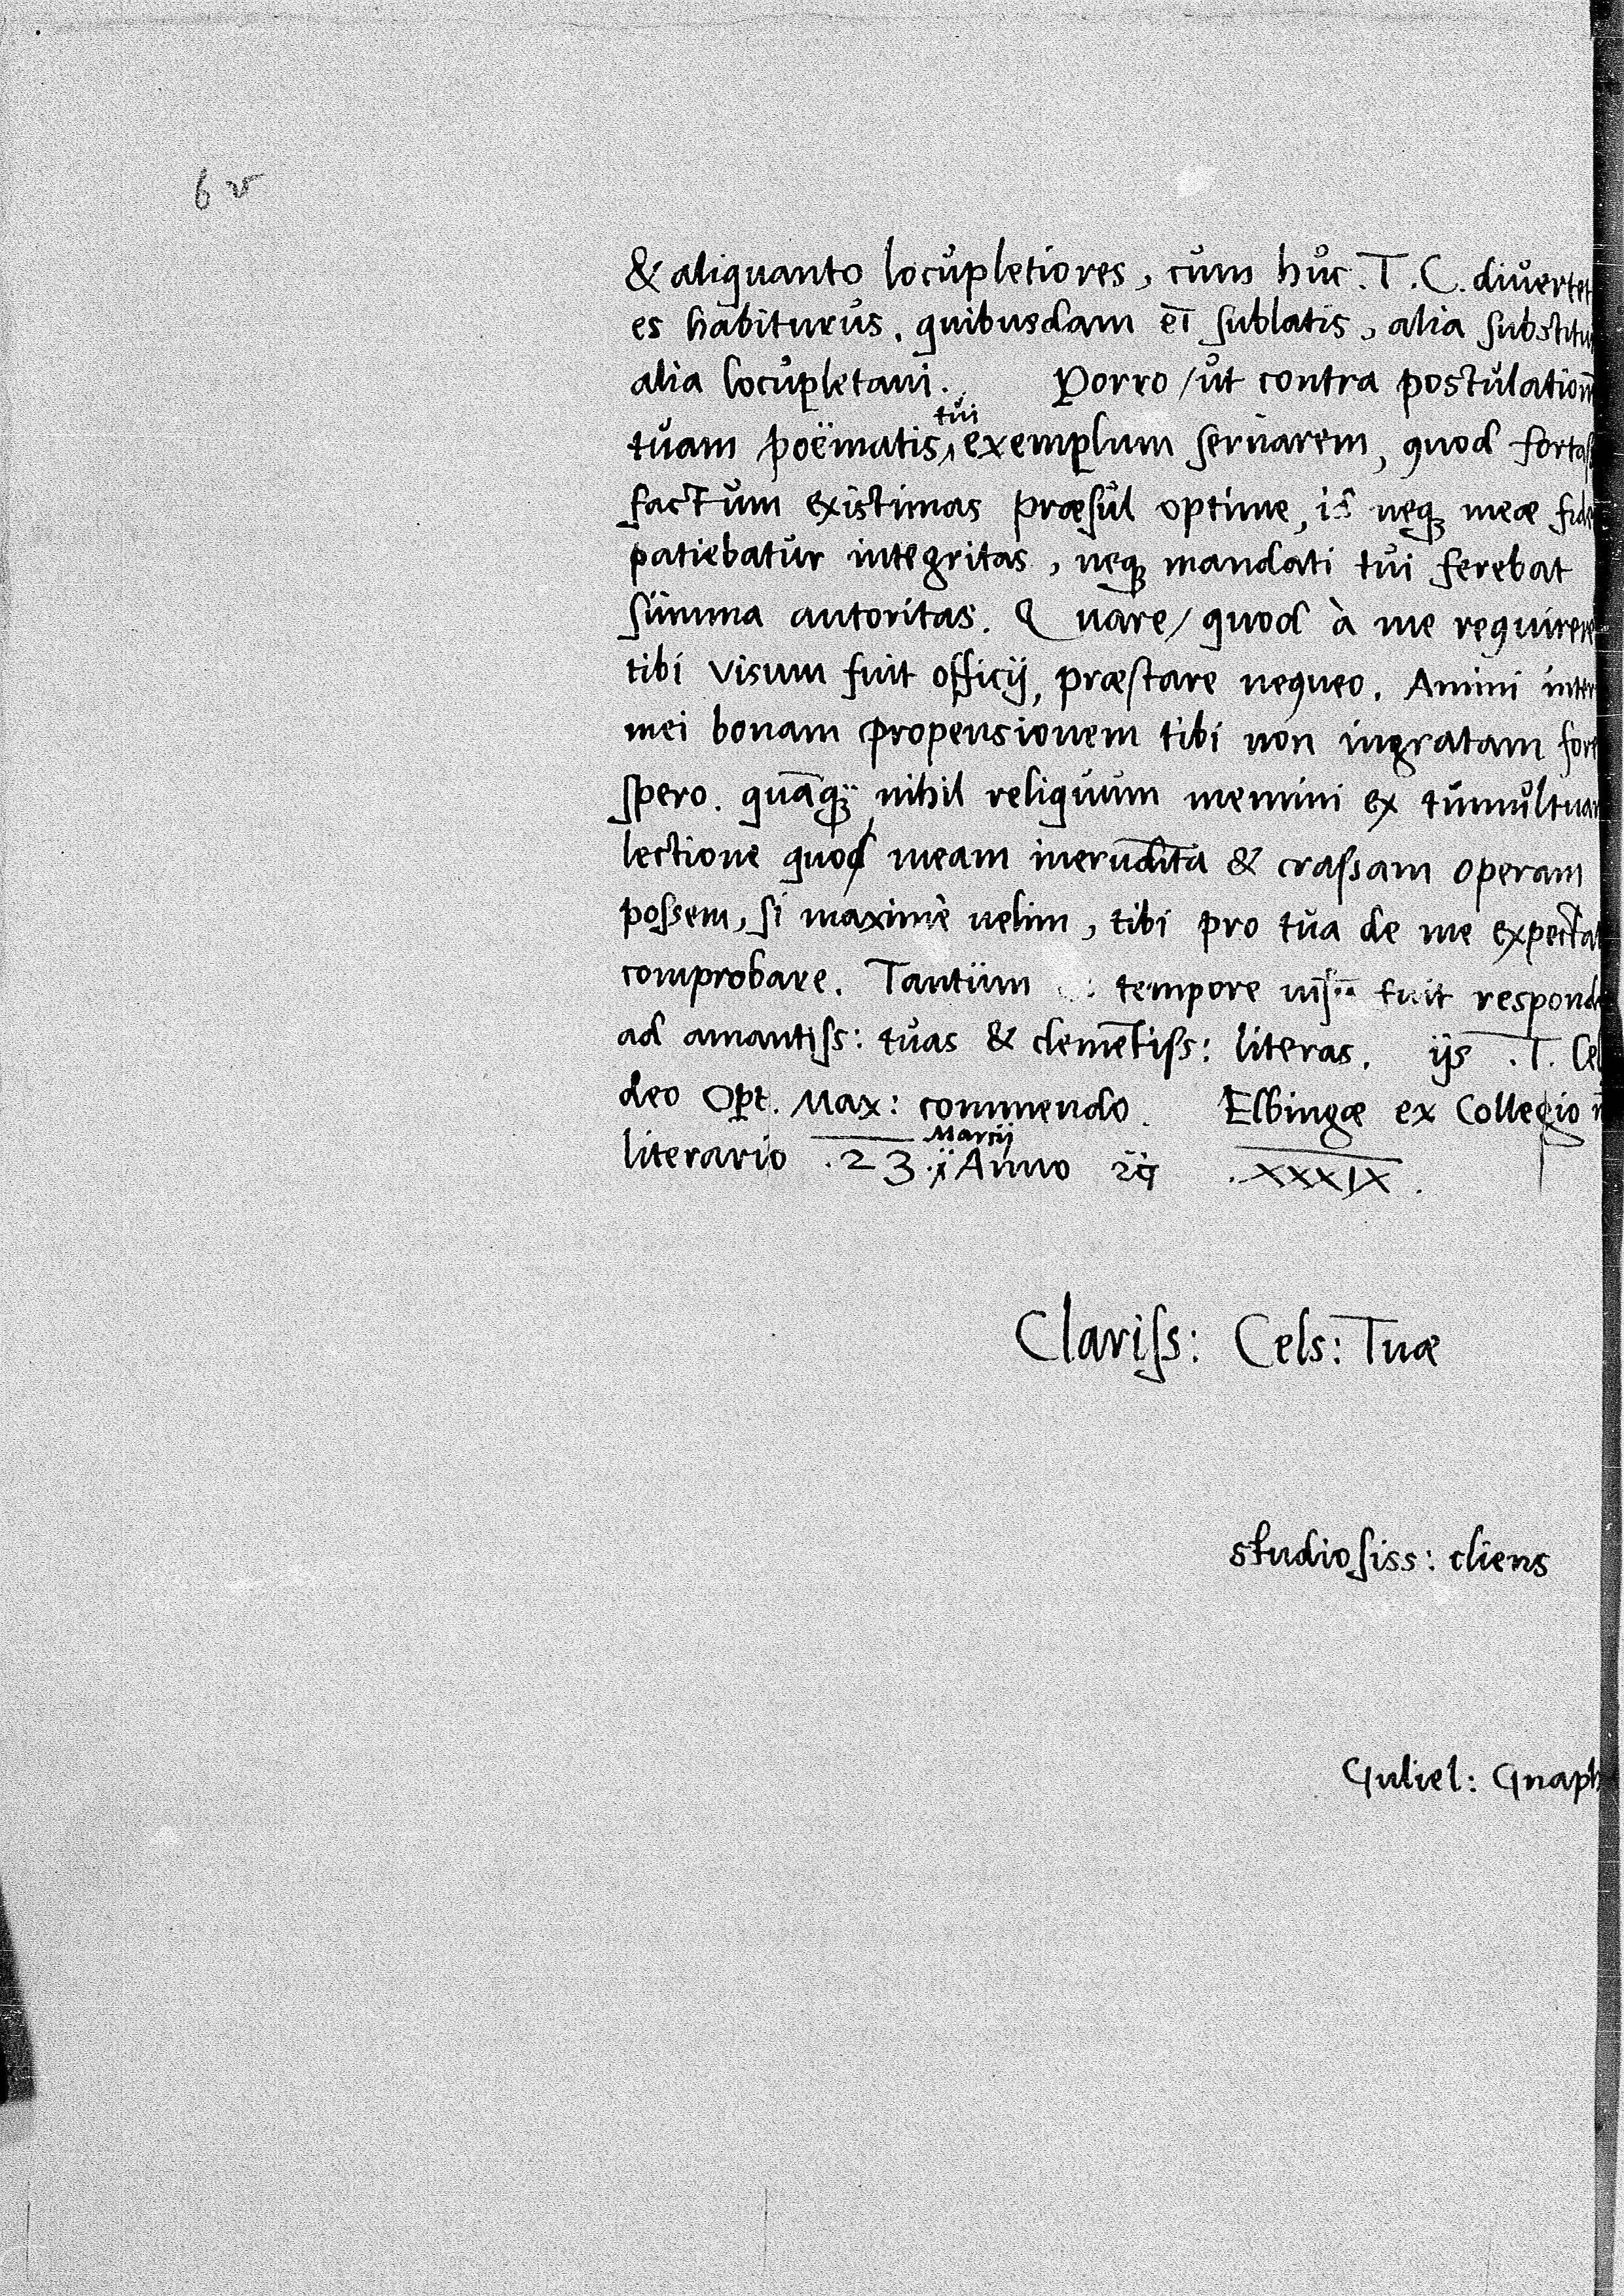 6v
& aliquanto locupletiores, cum huc .T.C. divertet
es habiturus, quibusdam eī sublatis, alia substitu
alia locupletavi. Porro / ut contra postulationē
tui
tuam poëmatis exemplum servarem, quod fortas
factum existimas præsul optime, id neqꝫ meæ fide
patiebatur integritas, neqꝫ mandati tui ferebat
summa autoritas. Quare / quod à me requirere
tibi visum fuit officij, præstare nequeo. Amini inter
mei bonam propensionem tibi non ingratam fore
spero. quāqꝫ nihil reliquum memini ex tumultuar
lectione quod meam ineruditā & crassam operam
possem, si maximè uelim, tibi pro tua de me expecta
comprobare. Tantum tempore fuit respond
ad amantiss: tuas & clemētiss: literas. ijs .T. Cel
deo Opt. Max: commendo. Elbingæ ex Collegio
Martij
literario .23. Anno .XXXIX.
Clariss: Cels: Tuæ
studiosiss: cliens
Guliel: Gnaph